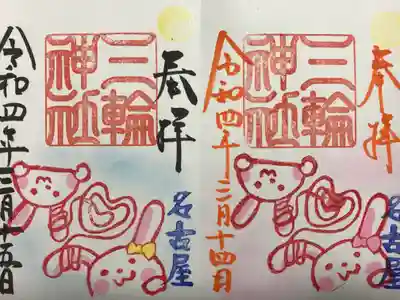 奉拝
三輪
神社
名古屋
令和四年三月十五日
奉拝
三輪
神社
名古屋
令和四年三月十四日